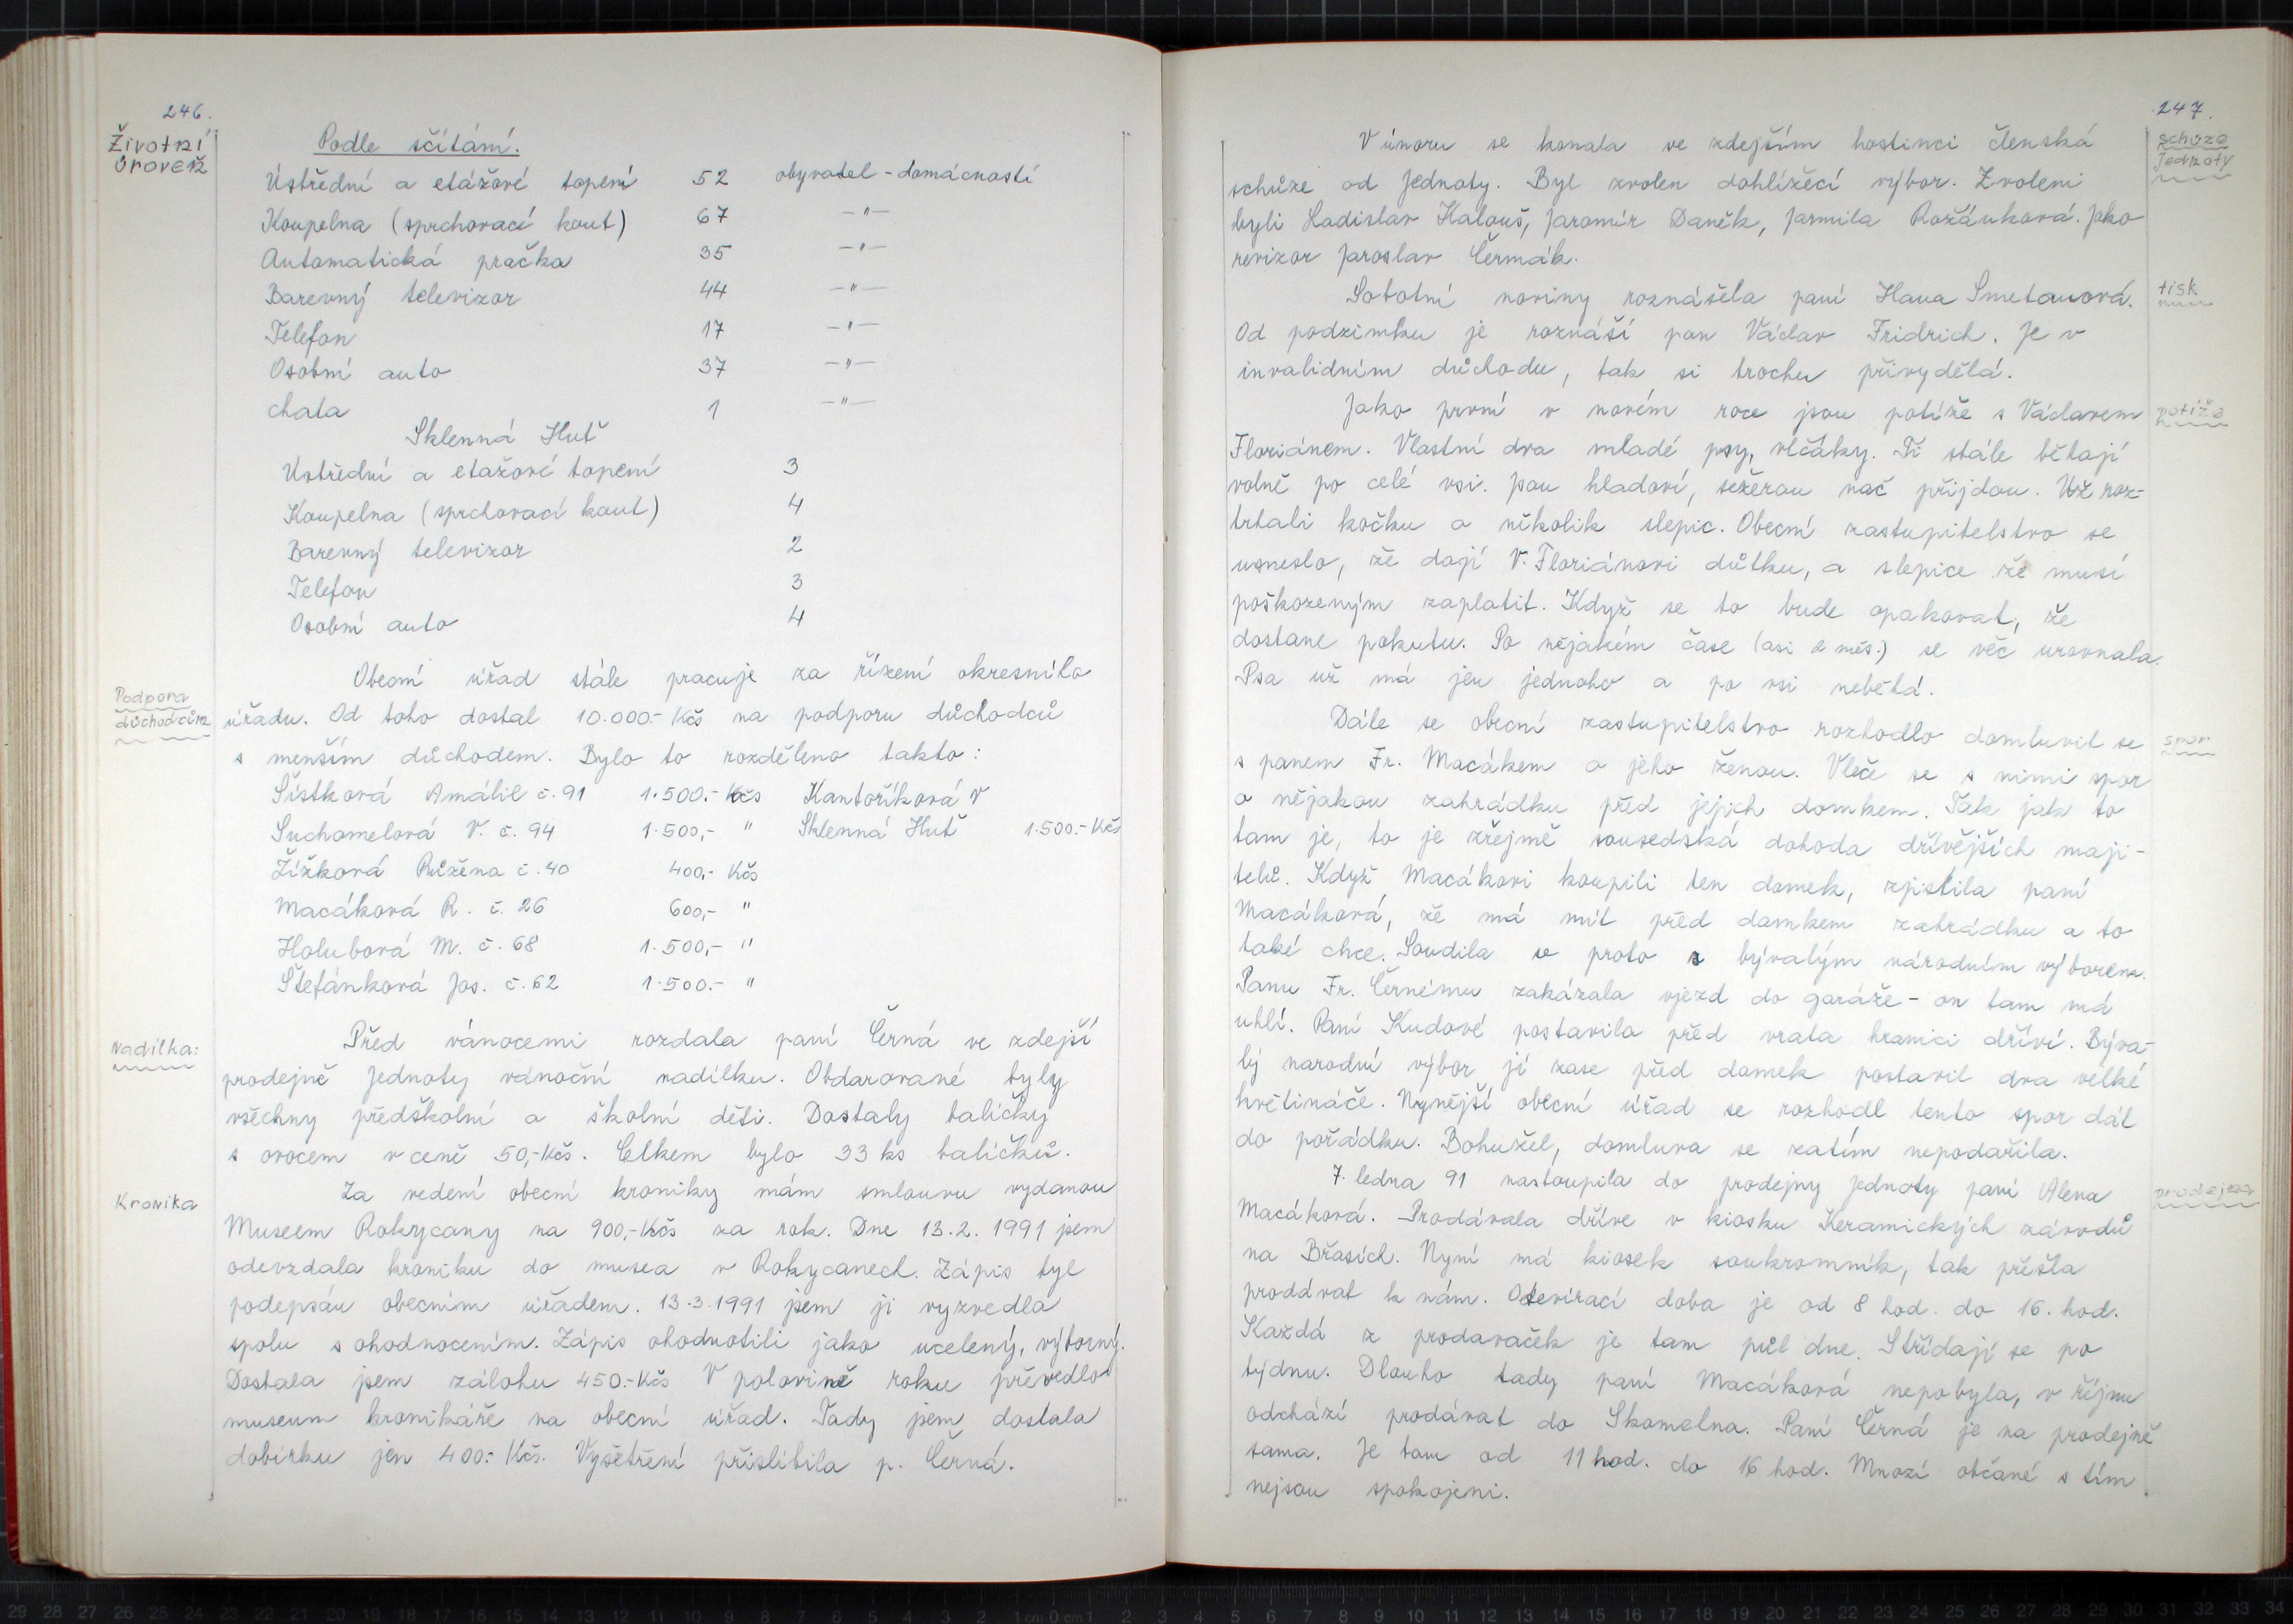 246.
Životní
úroveň
Podle sčítání.
Ústřední a etážové topení 52 obyvatel - domácností
Koupelna (sprchovací kout) 67 —"—
Automatická pračka 35 —"—
Barevný televizor 44 —"—
Telefon 17 —"—
Osobní auto 37 —"—
chata 1 —"—
Sklenná Huť
Ústřední a etažové topení 3
Koupelna (sprchovací kout) 4
Barevný televizor 2
Telefon 3
Osobní auto 4
Obecní úřad stále pracuje za řízení okresního
Podpora
důchodcům
úřadu. Od toho dostal 10.000.- Kčs na podporu důchodců
s menším důchodem. Bylo to rozděleno takto:
Šístková Amálie č. 91 1.500.- Kčs Kantoříková V
Suchomelová V. č. 94 1.500,- " Sklenná Huť 1.500.- Kčs
Žížková Růžena č. 40 400,- Kčs
Macáková R. č. 26 600,- "
Holubová M. č. 68 1.500,- "
Štefánková Jos. č. 62 1.500.- "
Před vánocemi rozdala paní Černá ve zdejší
Nadílka:
prodejně Jednoty vánoční nadílku. Obdarované byly
všechny předškolní a školní děti. Dostaly balíčky
s ovocem v ceně 50,- Kčs. Celkem bylo 33 ks balíčků.
Za vedení obecní kroniky mám smlouvu vydanou
Kronika
Museem Rokycany na 900,- Kčs za rok. Dne 13.2. 1991 jsem
odevzdala kroniku do musea v Rokycanech. Zápis byl
podepsán obecním úřadem. 13.3.1991 jsem ji vyzvedla
spolu s ohodnocením. Zápis ohodnotili jako ucelený, výborný.
Dostala jsem zálohu 450.- Kčs V polovině roku převedlo
museum kronikáře na obecní úřad. Tady jsem dostala
dobírku jen 400.- Kčs. Vyšetření přislíbila p. Černá.
247.
V únoru se konala ve zdejším hostinci členská
schůze
Jednoty
schůze od Jednoty. Byl zvolen dohlížecí výbor. Zvoleni
byli Ladislav Kalouš, Jaromír Daněk, Jarmila Rožánková. Jako
revizor Jaroslav Čermák.
Sobotní noviny roznášela paní Hana Smetanová.
tisk
Od podzimku je roznáší pan Václav Fridrich. Je v
invalidním důchodu, tak si trochu přivydělá.
Jako první v novém roce jsou potíže s Václavem
potíže
Floriánem. Vlastní dva mladé psy, vlčáky. Ti stále běhají
volně po celé vsi. Jsou hladoví, sežerou nač přijdou. Už roz-
trhali kočku a několik slepic. Obecní zastupitelstvo se
usneslo, že dají V. Floriánovi důtku, a slepice že musí
poškozeným zaplatit. Když se to bude opakovat, že
dostane pokutu. Po nějakém čase (asi 2 měs.) se věc urovnala.
Psa už má jen jednoho a po vsi neběhá.
Dále se obecní zastupitelstvo rozhodlo domluvit se
spor
s panem Fr. Macákem a jeho ženou. Vleče se s nimi spor
o nějakou zahrádku před jejich domkem. Tak jak to
tam je, to je zřejmě sousedská dohoda dřívějších maji-
telů. Když Macákovi koupili ten domek, zjistila paní
Macáková, že má mít před domkem zahrádku a to
také chce. Soudila se proto s bývalým národním výborem.
Panu Fr. Černému zakázala vjezd do garáže - on tam má
uhlí. Paní Kudové postavila před vrata hranici dříví. Býva-
lý narodní výbor jí zase před domek postavil dva velké
květináče. Nynější obecní úřad se rozhodl tento spor dát
do pořádku. Bohužel, domluva se zatím nepodařila.
7. ledna 91 nastoupila do prodejny Jednoty paní Alena
prodejna
Macáková. Prodávala dříve v kiosku Keramických závodů
na Břasích. Nyní má kiosek soukromník, tak přešla
prodávat k nám. Otevírací doba je od 8 hod. do 16. hod.
Každá z prodavaček je tam půl dne. Střídají se po
týdnu. Dlouho tady paní Macáková nepobyla, v říjnu
odchází prodávat do Skomelna. Paní Černá je na prodejně
sama. Je tam od 11 hod. do 16 hod. Mnozí občané s tím
nejsou spokojeni.